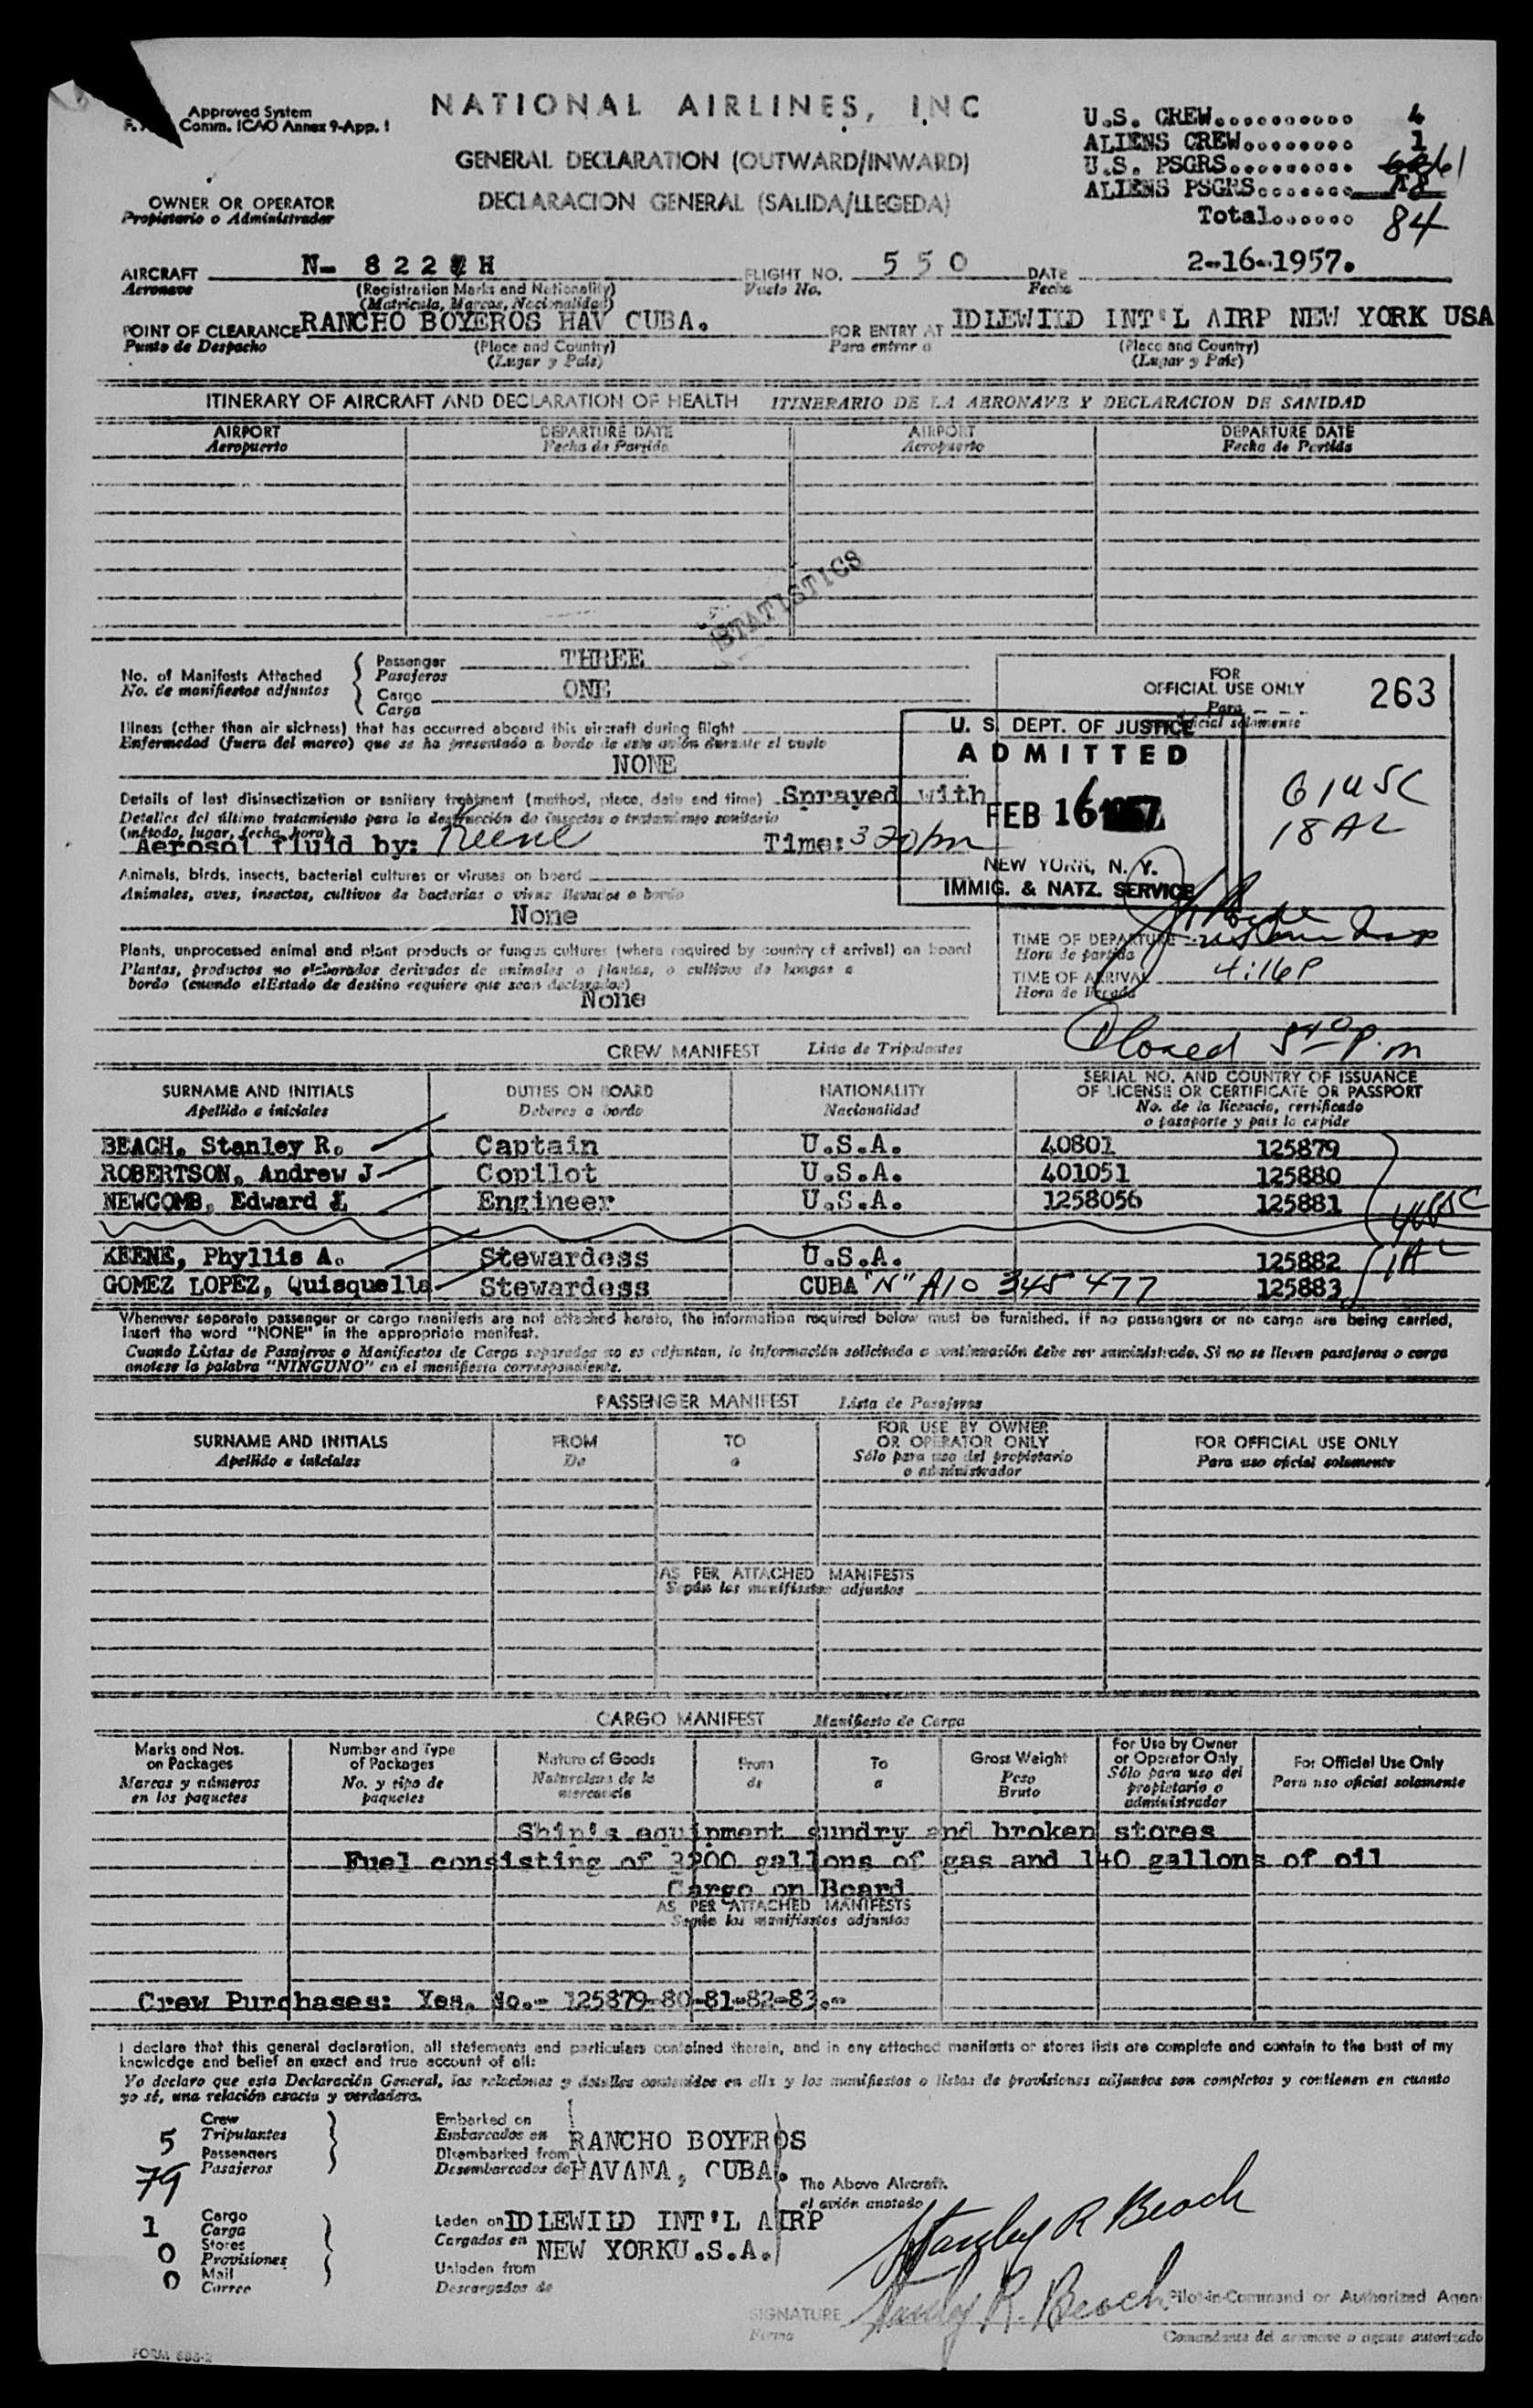 Approved System
Comm. ICAO Annex 9-App. 1
NATIONAL AIRLINES, INC
GENERAL DECLARATION (OUTWARD/INWARD)
DECLARACION GENERAL (SALIDA/LLEGEDA)
OWNER OR OPERATOR
Propietario o Administrador
U.S. CREW.......... 4
ALIENS CREW........ 1
U.S. PSGRS......... 61
ALIENS PSGRS....... 18
Total...... 84
AIRCRAFT N- 822 H FLIGHT NO. 550 DATE 2-16-1957.
Aeronave (Registration Marks and Nationality) Vuelo No. Fecha
(Matricula, Marcas, Nacionalidad)
POINT OF CLEARANCE RANCHO BOYEROS HAV CUBA. FOR ENTRY AT IDLEWILD INT'L AIRP NEW YORK USA
Punto de Despacho (Place and Country) Para entrar a (Place and Country)
(Lugar y País) (Lugar y País)
ITINERARY OF AIRCRAFT AND DECLARATION OF HEALTH ITINERARIO DE LA AERONAVE Y DECLARACION DE SANIDAD
AIRPORT DEPARTURE DATE AIRPORT DEPARTURE DATE
Aeropuerto Fecha de Partida Aeropuerto Fecha de Partida
STATISTICS
No. of Manifests Attached Passenger THREE
No. de manifiestos adjuntos Pasajeros
Cargo ONE
Carga
FOR
OFFICIAL USE ONLY 263
Para
oficial solamente
Illness (other than air sickness) that has occurred aboard this aircraft during flight
Enfermedad (fuera del mareo) que se ha presentado a bordo de este avión durante el vuelo
NONE
U. S. DEPT. OF JUSTICE
ADMITTED
FEB 16 1957
NEW YORK, N. Y.
IMMIG. & NATZ. SERVICE
61 USC
18 AL
Details of last disinsectization or sanitary treatment (method, place, date and time) Sprayed with
Detalles del último tratamiento para la destrucción de insectos o tratamiento sanitario
(método, lugar, fecha, hora)
Aerosol fluid by: Keene Time: 320 pm
Animals, birds, insects, bacterial cultures or viruses on board
Animales, aves, insectos, cultivos de bacterias o virus llevados a bordo
None
Plants, unprocessed animal and plant products or fungus cultures (where required by country of arrival) on board
Plantas, productos no elaborados derivados de animales o plantas, o cultivos de hongos a
bordo (cuando el Estado de destino requiere que sean declarados)
None
TIME OF DEPARTURE
Hora de partida
TIME OF ARRIVAL 4:16P
Hora de llegada
Closed 540 P.m
CREW MANIFEST Lista de Tripulantes
SURNAME AND INITIALS DUTIES ON BOARD NATIONALITY SERIAL NO. AND COUNTRY OF ISSUANCE
OF LICENSE OR CERTIFICATE OR PASSPORT
Apellido e iniciales Deberes a bordo Nacionalidad No. de la licencia, certificado
o pasaporte y país lo expide
BEACH, Stanley R. Captain U.S.A. 40801 125879
ROBERTSON, Andrew J Copilot U.S.A. 401051 125880
NEWCOMB, Edward L Engineer U.S.A. 1258056 125881
4 USC
KEENE, Phyllis A. Stewardess U.S.A. 125882
1 AL
GOMEZ LOPEZ, Quisquella Stewardess CUBA "N" A10 345 477 125883
Whenever separate passenger or cargo manifests are not attached hereto, the information required below must be furnished. If no passengers or no cargo are being carried,
insert the word "NONE" in the appropriate manifest.
Cuando Listas de Pasajeros o Manifiestos de Carga separados no se adjuntan, la información solicitada a continuación debe ser suministrada. Si no se lleven pasajeros o carga
anotese la palabra "NINGUNO" en el manifiesto correspondiente.
PASSENGER MANIFEST Lista de Pasajeros
SURNAME AND INITIALS FROM TO FOR USE BY OWNER
OR OPERATOR ONLY FOR OFFICIAL USE ONLY
Apellido e iniciales De a Sólo para uso del propietario
o administrador Para uso oficial solamente
AS PER ATTACHED MANIFESTS
Según los manifiestos adjuntos
CARGO MANIFEST Manifiesto de Carga
Marks and Nos.
on Packages
Marcas y números
en los paquetes
Number and Type
of Packages
No. y tipo de
paquetes
Nature of Goods
Naturaleza de la
mercancía
From
de
To
a
Gross Weight
Peso
Bruto
For Use by Owner
or Operator Only
Sólo para uso del
propietario o
administrador
For Official Use Only
Para uso oficial solamente
Ship's equipment sundry and broken stores
Fuel consisting of 3200 gallons of gas and 140 gallons of oil
Cargo on Board
AS PER ATTACHED MANIFESTS
Según los manifiestos adjuntos
Crew Purchases: Yes, No.- 125879-80-81-82-83.-
I declare that this general declaration, all statements and particulars contained therein, and in any attached manifests or stores lists are complete and contain to the best of my
knowledge and belief an exact and true account of all:
Yo declaro que esta Declaración General, las relaciones y detalles contenidos en ella y los manifiestos o listas de provisiones adjuntos son completos y contienen en cuanto
yo sé, una relación exacta y verdadera.
5 Crew
Tripulantes
79 Passengers
Pasajeros
Embarked on
Embarcados en RANCHO BOYEROS
Disembarked from
Desembarcados de HAVANA, CUBA.
The Above Aircraft.
el avión anotado
1 Cargo
Carga
0 Stores
Provisiones
0 Mail
Correo
Laden on IDLEWILD INT'L AIRP
Cargados en NEW YORKU.S.A.
Unladen from
Descargados de
Stanley R Beach
SIGNATURE Stanley R. Beach Pilot-in-Command or Authorized Agen
Firma Comandante del aeronave o agente autorizado
FORM 883-2